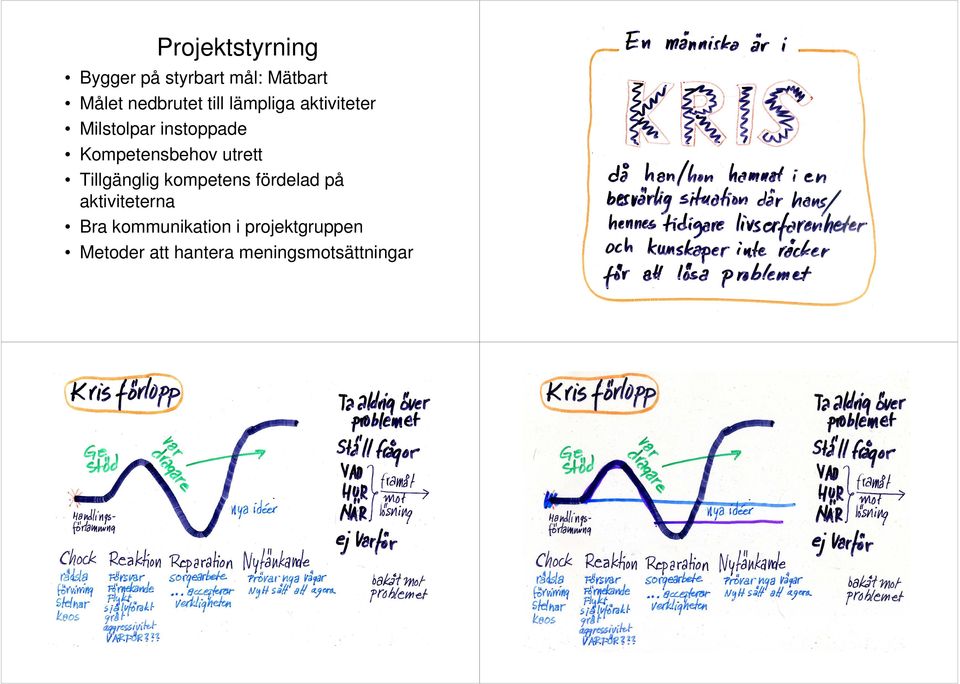 Projektstyrning
• Bygger på styrbart mål: Mätbart
• Målet nedbrutet till lämpliga aktiviteter
• Milstolpar instoppade
• Kompetensbehov utrett
• Tillgänglig kompetens fördelad på
aktiviteterna
• Bra kommunikation i projektgruppen
• Metoder att hantera meningsmotsättningar
En människa är i
KRIS
då han/hon hamnat i en
besvärlig situation där hans/
hennes tidigare livserfarenheter
och kunskaper inte räcker
för att lösa problemet
Kris förlopp
Ge
stöd
var
dragare
nya idéer
Handlings-
förlamning
Chock Reaktion Reparation Nytänkande
rädsla
förvirring
stelnar
kaos
Försvar
Förnekande
Flykt
självförakt
gråt
aggressivitet
VARFÖR???
sorgearbete
... accepterar
verkligheten
Prövar nya vägar
Nytt sätt att agera
Ta aldrig över
problemet
Ställ frågor
VAD
HUR
NÄR
framåt
mot
lösning
ej Varför
bakåt mot
problemet
Kris förlopp
Ge
stöd
var
dragare
nya idéer
Handlings-
förlamning
Chock Reaktion Reparation Nytänkande
rädsla
förvirring
stelnar
kaos
Försvar
Förnekande
Flykt
självförakt
gråt
aggressivitet
VARFÖR???
sorgearbete
... accepterar
verkligheten
Prövar nya vägar
Nytt sätt att agera
Ta aldrig över
problemet
Ställ frågor
VAD
HUR
NÄR
framåt
mot
lösning
ej Varför
bakåt mot
problemet